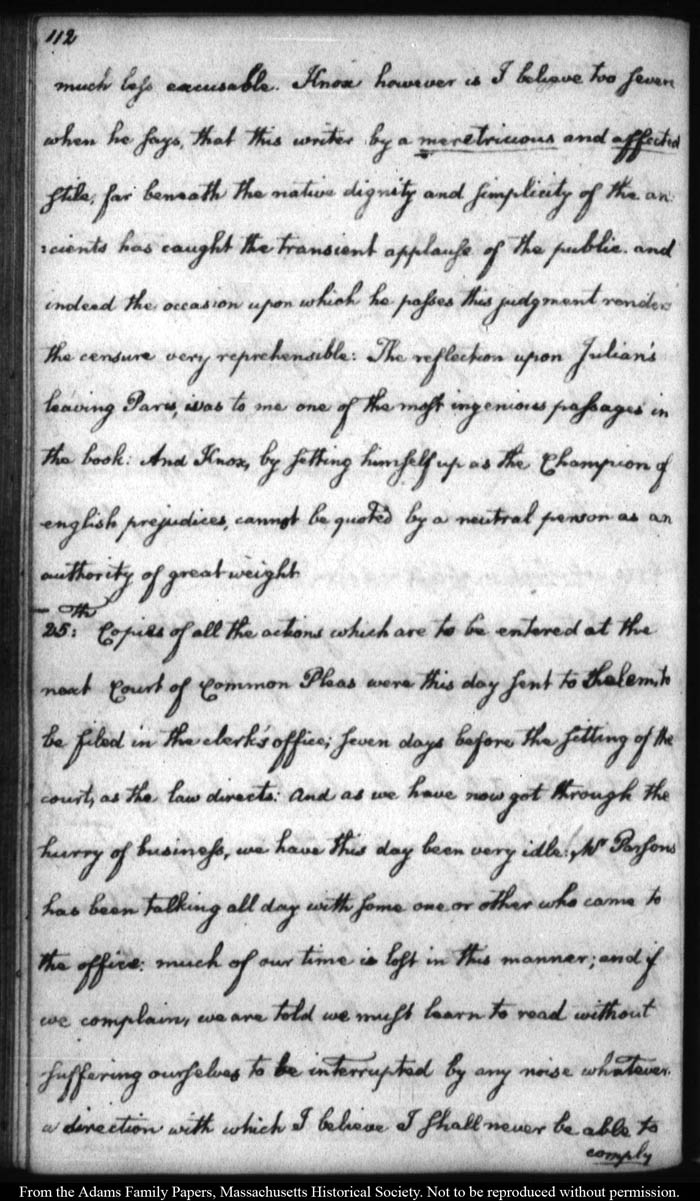 112
much less excusable. Knox however is I believe too severe
when he says, that this writer by a meretricious and affected
stile, far beneath the native dignity and simplicity of the an-
:cients has caught the transient applause of the public. and
indeed the occasion upon which he passes this judgment renders
the censure very reprehensible: The reflection upon Julian's
leaving Paris, was to me one of the most ingenious passages in
the book: And Knox, by setting himself up as the Champion of
english prejudices, cannot be quoted by a neutral person as an
authority of great weight.
25:th Copies of all the actions which are to be entered at the
next Court of Common Pleas were this day sent to Salem, to
be filed in the clerk's office; seven days before the sitting of the
court, as the law directs: And as we have now got through the
hurry of business, we have this day been very idle: Mr Parsons
has been talking all day with some one or other who came to
the office: much of our time is lost in this manner; and if
we complain, we are told we must learn to read without
suffering ourselves to be interrupted by any noise whatever.
a direction with which I believe I shall never be able to
comply
From the Adams Family Papers, Massachusetts Historical Society. Not to be reproduced without permission.